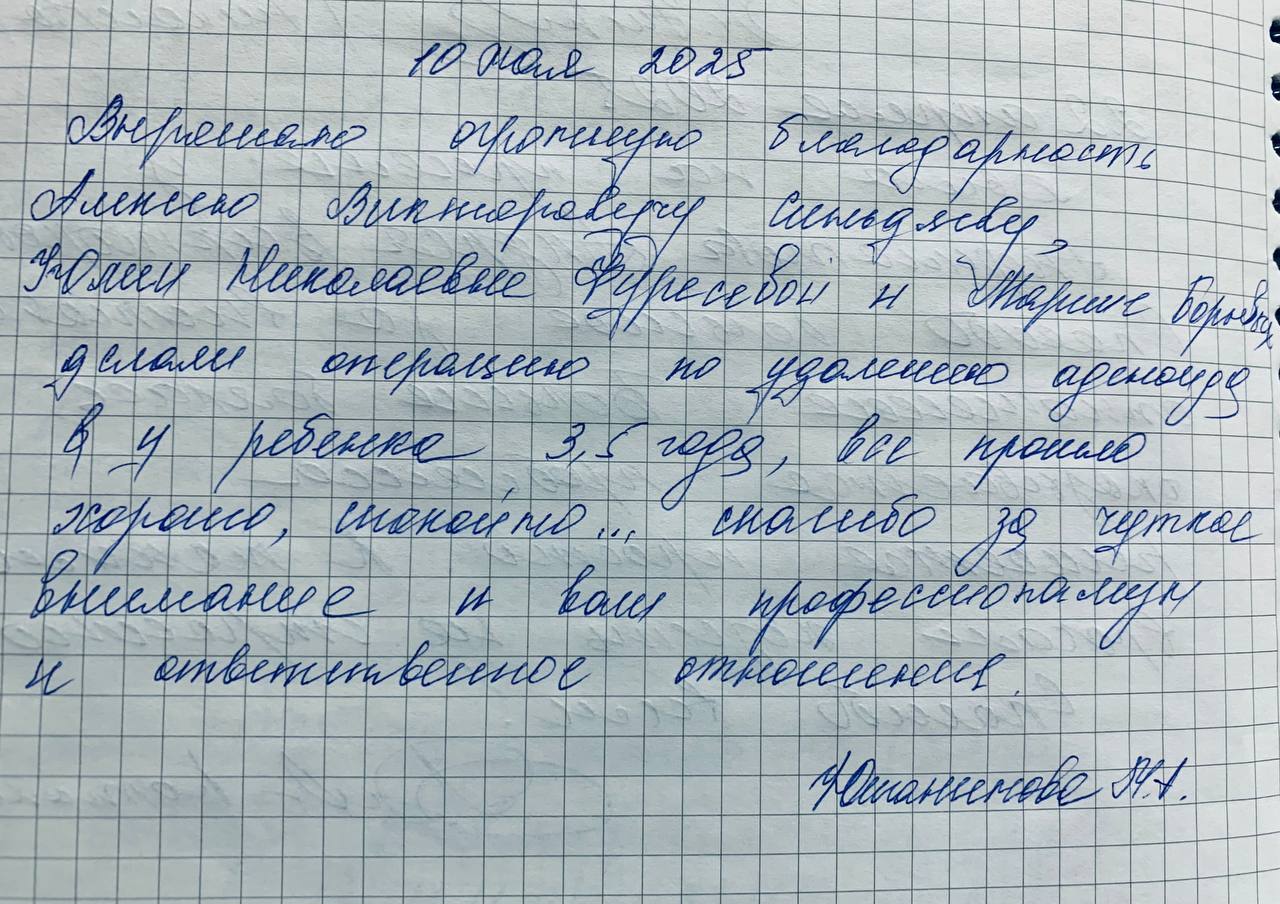 10 мая 2025
Выражаю огромную благодарность
Алексею Викторовичу
Юлии Николаевне и Марине
делали операцию по удалению аденоида
у ребенка 3,5 года, все прошло
хорошо, спокойно... спасибо за чуткое
внимание и ваш профессионализм
и ответственное отношения.